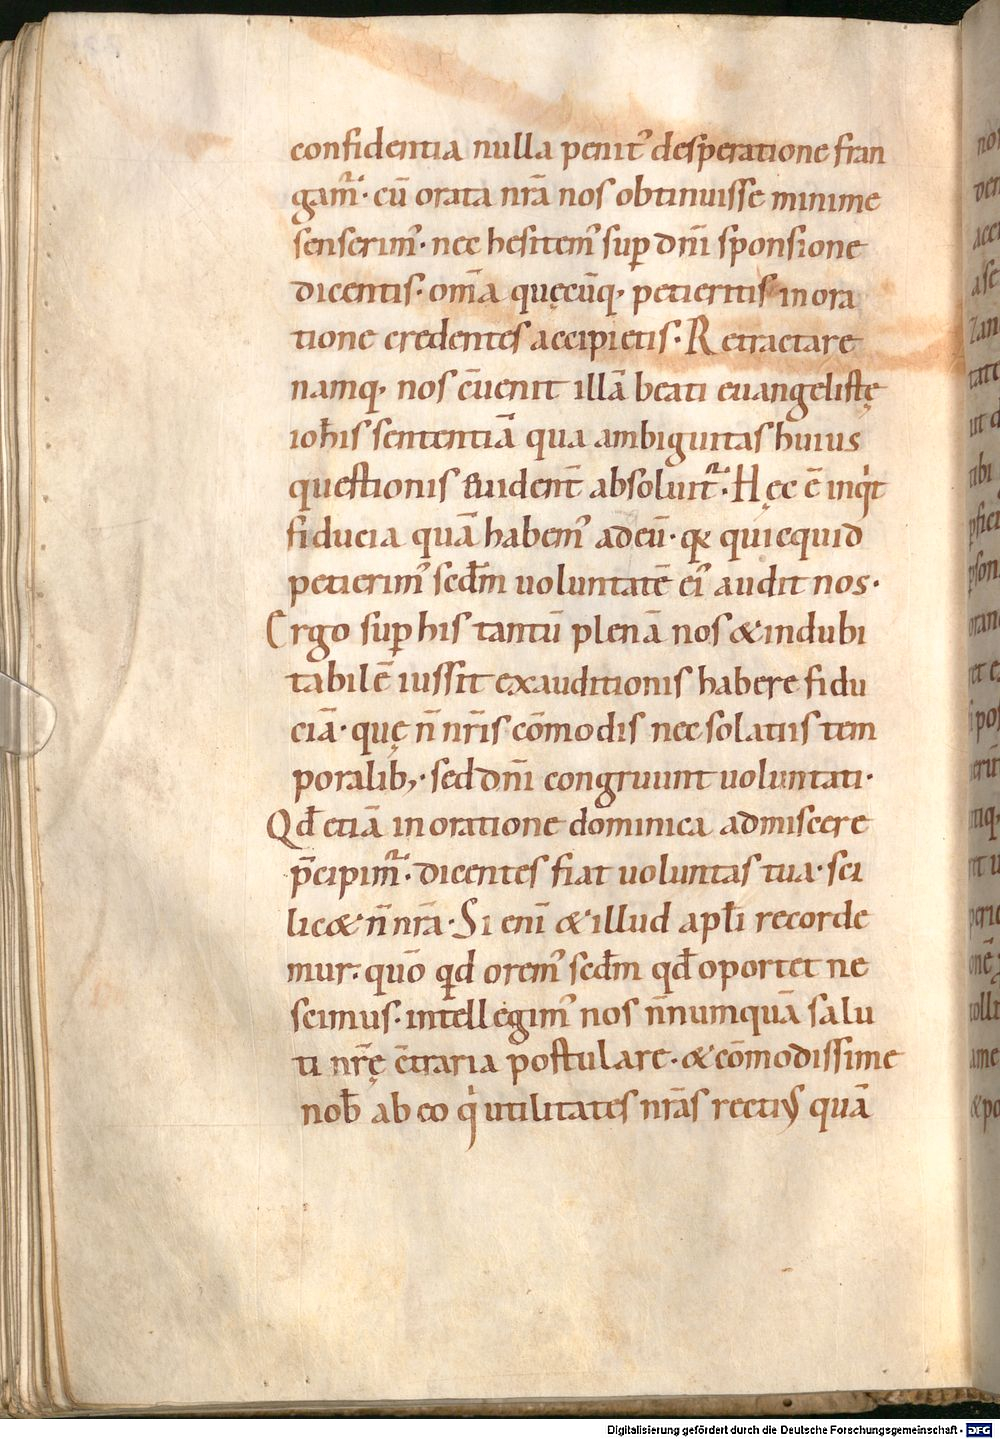 confidentia nulla penit᾽ desperatione fran
gam᾽. cū orata nr̄a nos obtinuisse minime
senserim᾽. nec hesitem᾽ sup dn̄i sponsione
dicentis. om̄a quęcūq; petieritis in ora
tione credentes accipietis. Retractare
namq; nos c̄uenit illā beati euangelistę
ioh̄is sententiā qua ambiguitas huius
questionis euident̄ absoluit᾽. Hęc ē inqͥt
fiducia quā habem᾽ ad eū. qꝛ quicquid
petierim᾽ secd̄m uoluntatē ei᾽ audit nos.
Ergo sup his tantū plenā nos & indubi
tabilē iussit exauditionis habere fidu
ciā. quę n̄ nr̄is cōmodis nec solatiis tem
poralib;. sed dn̄i congruunt uoluntati.
Qd̄ etiā in oratione dominica admiscere
p̄cipim᾽. dicentes fiat uoluntas tua. sci
lic& n̄ nr̄a. Si enī & illud apl̄i recorde
mur. quō qͥd orem᾽ secd̄m qd̄ oportet ne
scimus. intellegim᾽ nos n̄numquā salu
ti nr̄ę c̄traria postulare. & cōmodissime
nob̄ ab eo qͥ utilitates nr̄as recti᾽ quā
Digitalisierung gefördert durch die Deutsche Forschungsgemeinschaft - DFG